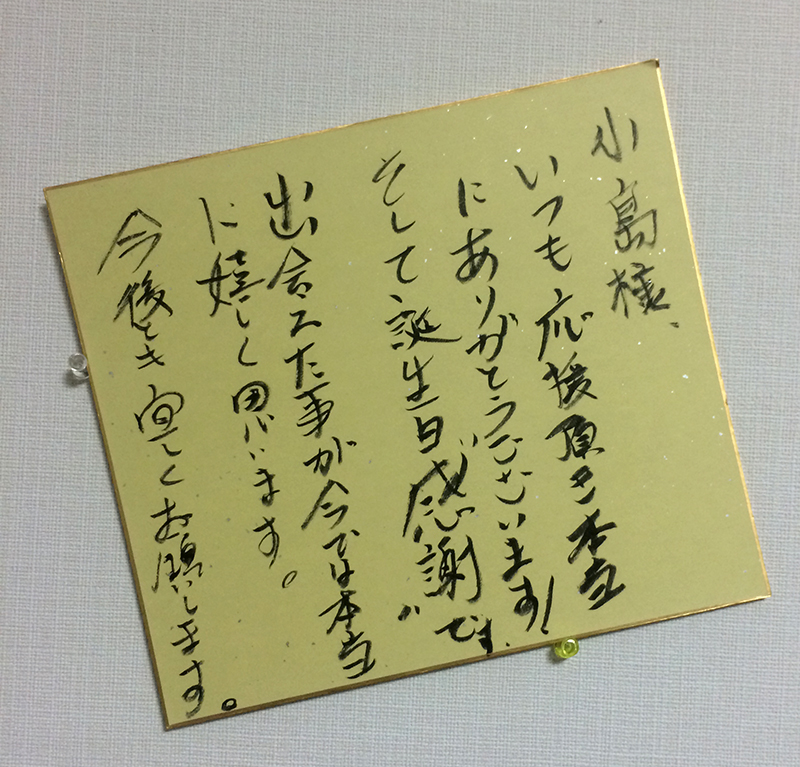 小島様、
いつも応援頂き本当
にありがとうございます!
そして誕生日"感謝"です。
出会えた事が今では本当
に嬉しく思います。
今後とも宜しくお願いします。